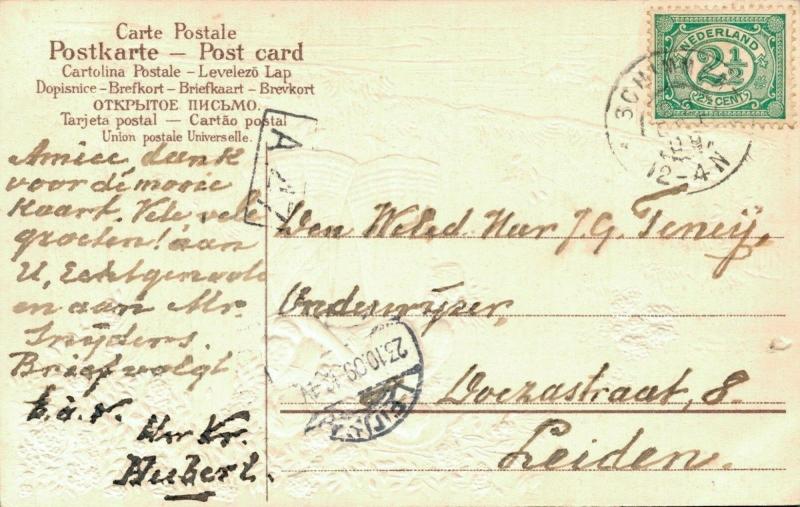 Carte Postale
Postkarte – Post card
Cartolina Postale – Levelező Lap
Dopisnice – Brefkort – Briefkaart – Brevkort
ОТКРЫТОЕ ПИСЬМО.
Tarjeta postal – Cartão postal
Union postale Universelle.
NEDERLAND
2½
2½ CENT
12-4N
A 27
Amice dank
voor de mooie
kaart. Vele vele
groeten! aan
U, Echtgenoote
en aan Mr.
Snijders.
Brief volgt
t.à.v.
Hubert.
Den Weled. Heer J. G.
Onderwijzer,
Doezastraat, 8.
Leiden.
23.10.09
LEIDEN